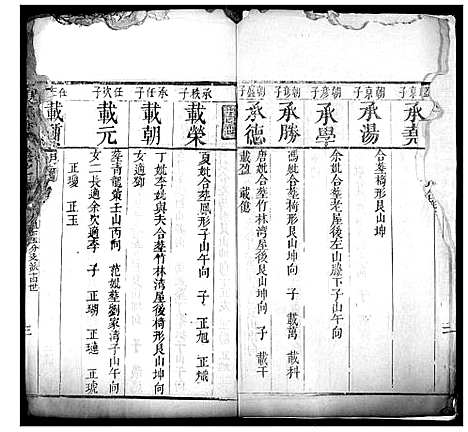 承堯
朝京子
承湯
合塟椅形艮山坤向
朝彦子
承學
余妣合塟老屋後左山腦下子山午向
朝彦子
承勝
馮妣合塟椅形艮山坤向 子 載萬 載科
朝盛子
承德
唐妣合塟竹林湾屋後艮山坤向 子 載干
載盈 載億
承秩子
載榮
夏妣合塟鳳形子山午向 子 正旭 正熾
承任子
載朝
丁妣李姚與夫合塟竹林湾屋後椅形艮山坤向
女適鄧
任次子
載元
塟青龍策壬山丙向 范妣塟劉家湾子山午向
女二長適余次適李 子 正瑚 正璉 正琥
正瓊 正玉
載
三